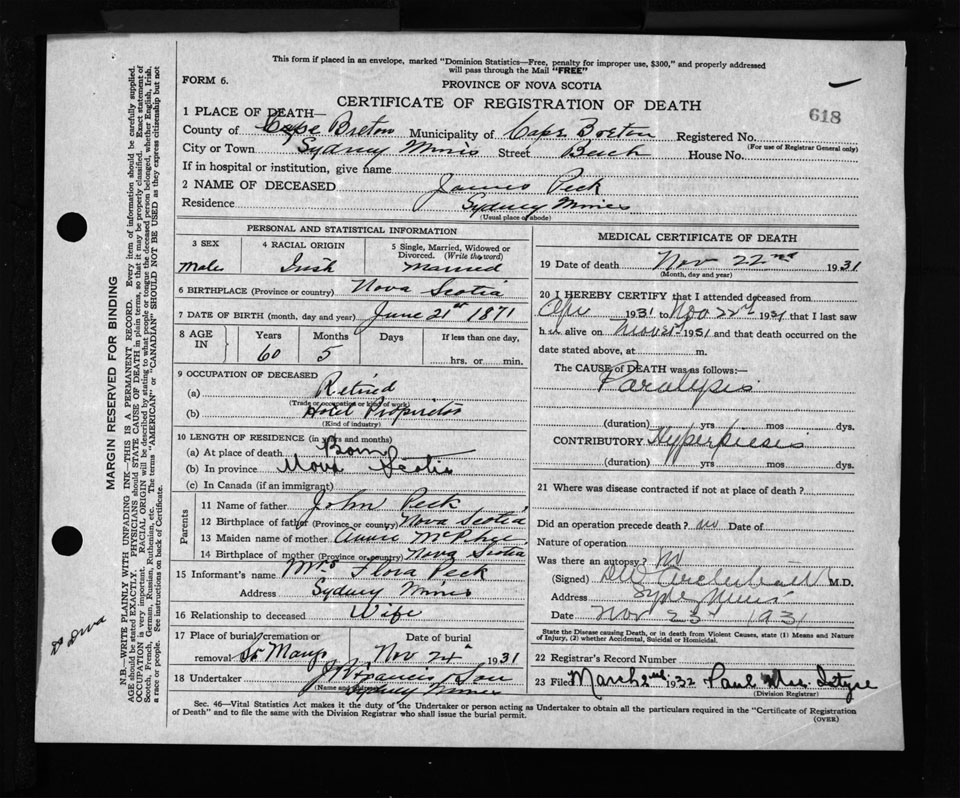 This form if placed in an envelope, marked "Dominion Statistics—Free, penalty for improper use, $300," and properly addressed
will pass through the Mail "FREE"
FORM 6.
PROVINCE OF NOVA SCOTIA
CERTIFICATE OF REGISTRATION OF DEATH
618
1 PLACE OF DEATH—
County of Cape Breton Municipality of Cape Breton Registered No.
(For use of Registrar General only)
City or Town Sydney Mines Street Beech House No.
If in hospital or institution, give name
2 NAME OF DECEASED James Peck
Residence Sydney Mines
(Usual place of abode)
PERSONAL AND STATISTICAL INFORMATION
3 SEX 4 RACIAL ORIGIN 5 Single, Married, Widowed or Divorced. (Write the word)
Male Irish Married
6 BIRTHPLACE (Province or country) Nova Scotia
7 DATE OF BIRTH (month, day and year) June 21st 1871
8 AGE IN Years Months Days If less than one day,
60 5 hrs. or min.
9 OCCUPATION OF DECEASED
(a) Retired
(Trade or occupation or kind of work)
(b) Hotel Proprietor
(Kind of industry)
10 LENGTH OF RESIDENCE (in years and months)
(a) At place of death Born
(b) In province Nova Scotia
(c) In Canada (if an immigrant)
Parents
11 Name of father John Peck
12 Birthplace of father (Province or country) Nova Scotia
13 Maiden name of mother Annie McPhee
14 Birthplace of mother (Province or country) Nova Scotia
15 Informant's name Mrs Flora Peck
Address Sydney Mines
16 Relationship to deceased Wife
17 Place of burial, cremation or removal St Marys Date of burial Nov 24th 1931
18 Undertaker J Francis Son
(Name and
Sydney Mines
MEDICAL CERTIFICATE OF DEATH
19 Date of death Nov 22nd 1931
(Month, day and year)
20 I HEREBY CERTIFY that I attended deceased from
1931 to Nov 22nd 1931 that I last saw
h alive on Nov 21st 1931 and that death occurred on the
date stated above, at m.
The CAUSE of DEATH was as follows:—
Paralysis
(duration) yrs mos dys.
CONTRIBUTORY Hyperpiesis
(duration) yrs mos dys.
21 Where was disease contracted if not at place of death?
Did an operation precede death? no Date of
Nature of operation
Was there an autopsy? No
(Signed) Archibald M.D.
Address Syd Mines
Date Nov 23 1931
State the Disease causing Death, or in death from Violent Causes, state (1) Means and Nature of Injury, (2) whether Accidental, Suicidal or Homicidal.
22 Registrar's Record Number
23 Filed March 2nd 1932 Paul
(Division Registrar)
Sec. 46—Vital Statistics Act makes it the duty of the Undertaker or person acting as Undertaker to obtain all the particulars required in the "Certificate of Registration
of Death" and to file the same with the Division Registrar who shall issue the burial permit.
(OVER)
MARGIN RESERVED FOR BINDING
N.B.—WRITE PLAINLY WITH UNFADING INK—THIS IS A PERMANENT RECORD. Every item of information should be carefully supplied.
AGE should be stated EXACTLY. PHYSICIANS should STATE CAUSE OF DEATH in plain terms, so that it may be properly classified. Exact statement of
OCCUPATION is very important. RACIAL ORIGIN will be described by stating to what people or tongue the deceased person belonged, whether English, Irish,
Scotch, French, German, Russian, Ruthenian, etc. The terms "AMERICAN" or "CANADIAN" SHOULD NOT BE USED as they express citizenship but not
a race or people. See instructions on back of Certificate.